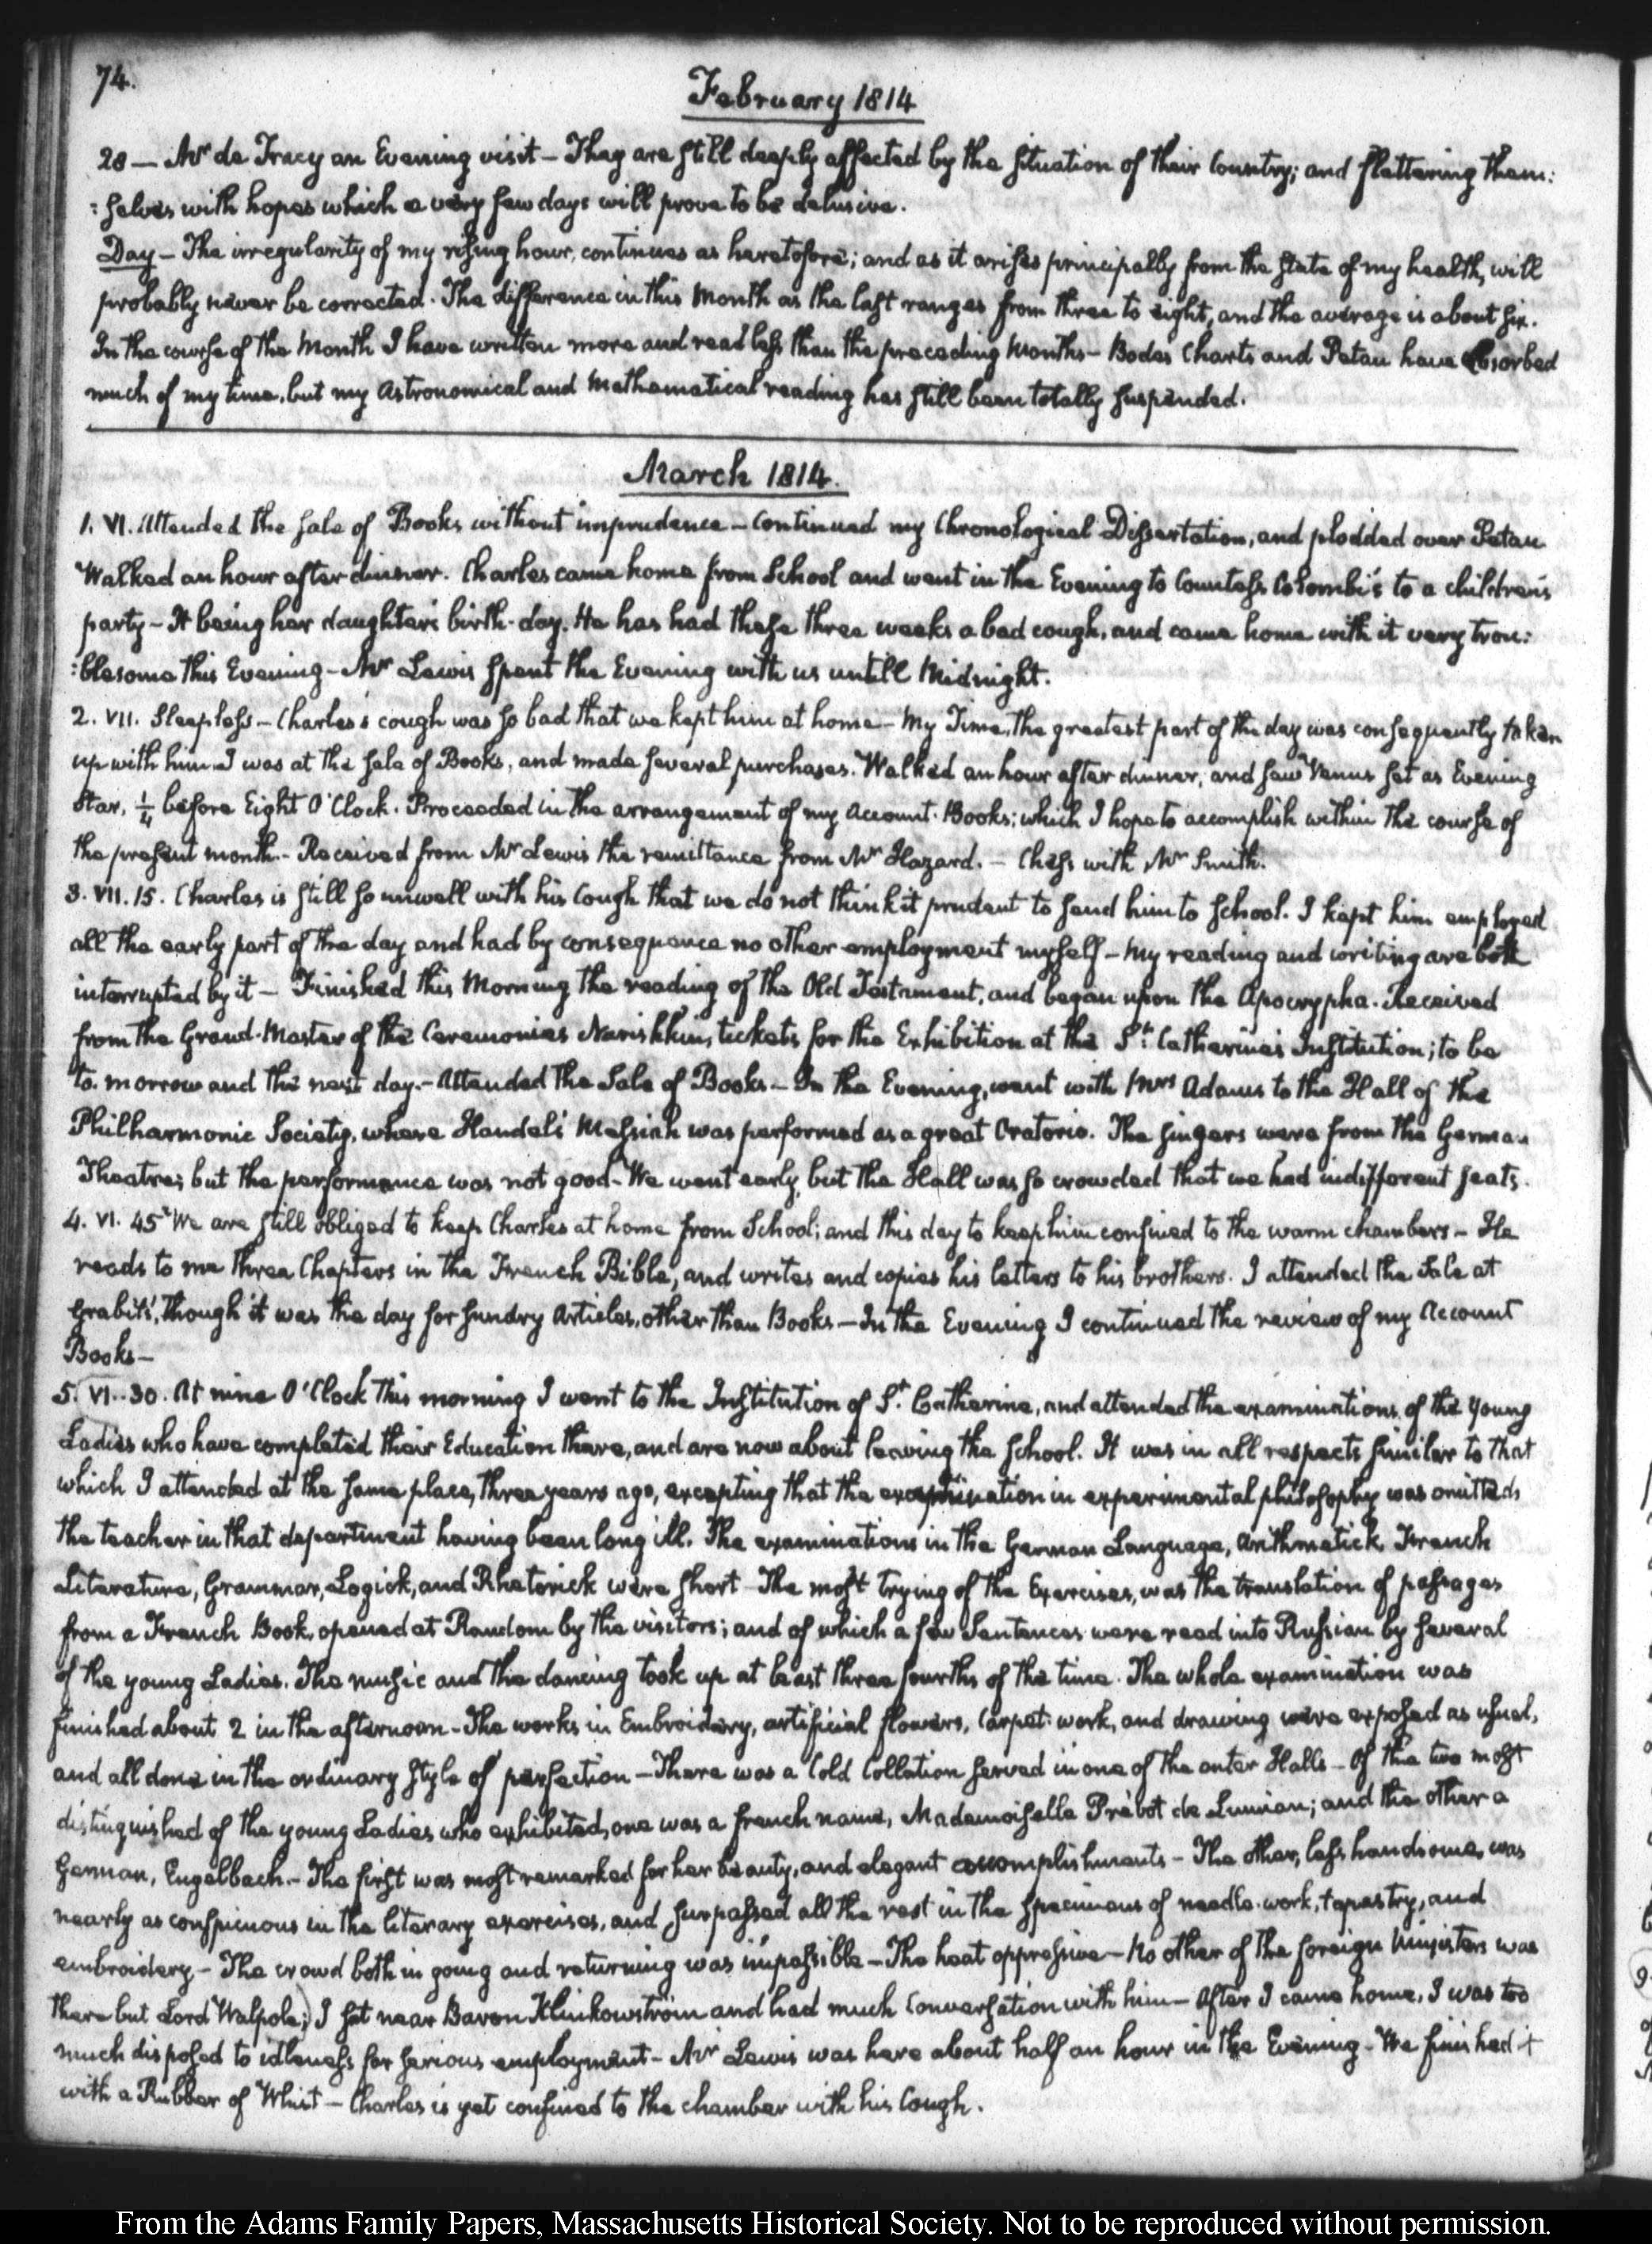 74.
February 1814
28 — Mr de Tracy an Evening visit — They are still deeply affected by the situation of their Country; and flattering them:
:selves with hopes which a very few days will prove to be delusive.
Day — The irregularity of my rising hour, continues as heretofore; and as it arises principally from the state of my health, will
probably never be corrected. The difference in this Month as the last ranges from three to eight, and the average is about six.
In the course of the Month I have written more and read less than the preceding Months — Bodes Charts and Petau have absorbed
much of my time, but my Astronomical and Mathematical reading has still been totally suspended.
March 1814.
1. VI. Attended the sale of Books without imprudence — Continued my Chronological Dissertation, and plodded over Petau
Walked an hour after dinner. Charles came home from School and went in the Evening to Countess Colombi's to a children's
party — It being her daughter's birth-day. He has had these three weeks a bad cough, and came home with it very trou:
:blesome this Evening — Mr Lewis spent the Evening with us untill Midnight.
2. VII. Sleepless — Charles's cough was so bad that we kept him at home — My Time, the greatest part of the day was consequently taken
up with him. I was at the sale of Books, and made several purchases. Walked an hour after dinner, and saw Venus set as Evening
Star, ¼ before Eight O'Clock. Proceeded in the arrangement of my Account-Books; which I hope to accomplish within the course of
the present month. — Received from Mr Lewis the remittance from Mr Hazard. — Chess with Mr Smith.
3. VII. 15. Charles is still so unwell with his Cough that we do not think it prudent to send him to School. I kept him employed
all the early part of the day and had by consequence no other employment myself — My reading and writing are both
interrupted by it — Finished this Morning the reading of the Old Testament, and began upon the Apocrypha. Received
from the Grand-Master of the Ceremonies Narishkin, tickets for the Exhibition at the St: Catherine's Institution; to be
to-morrow and the next day. — Attended the Sale of Books — In the Evening, went with Mrs Adams to the Hall of the
Philharmonic Society, where Handel's Messiah was performed as a great Oratorio. The singers were from the German
Theatre; but the performance was not good — We went early, but the Hall was so crowded that we had indifferent seats.
4. VI. 45. We are still obliged to keep Charles at home from School; and this day to keep him confined to the warm chambers — He
reads to me three Chapters in the French Bible, and writes and copies his letters to his brothers. I attended the sale at
Grabit's, though it was the day for sundry Articles, other than Books — In the Evening I continued the review of my Account
Books —
5. VI. 30. At nine O'Clock this morning I went to the Institution of St. Catherine, and attended the examinations of the young
Ladies who have completed their Education there, and are now about leaving the School. It was in all respects similar to that
which I attended at the same place, three years ago, excepting that the examination in experimental philosophy was omitted,
the teacher in that department having been long ill. The examinations in the German Language, Arithmetick, French
Literature, Grammar, Logick, and Rhetorick were short — The most trying of the Exercises, was the translation of passages
from a French Book, opened at Random by the visitors; and of which a few Sentences were read into Russian by several
of the young Ladies. The music and the dancing took up at least three fourths of the time. The whole examination was
finished about 2 in the afternoon — The works in Embroidery, artificial flowers, Carpet-work, and drawing were exposed as usual,
and all done in the ordinary style of perfection — There was a Cold Collation served in one of the outer Halls — Of the two most
distinguished of the young Ladies who exhibited, one was a french name, Mademoiselle Prévot de Lumian; and the other a
German, Engelbach. — The first was most remarked for her beauty, and elegant accomplishments — The other, less handsome, was
nearly as conspicuous in the literary exercises, and surpassed all the rest in the specimens of needle-work, tapestry, and
embroidery — The crowd both in going and returning was impassible — The heat oppressive — No other of the foreign Ministers was
there but Lord Walpole; I sat near Baron Klinkowström and had much Conversation with him — After I came home, I was too
much disposed to idleness for serious employment — Mr Lewis was here about half an hour in the Evening — We finished it
with a Rubber of Whist — Charles is yet confined to the chamber with his Cough.
From the Adams Family Papers, Massachusetts Historical Society. Not to be reproduced without permission.